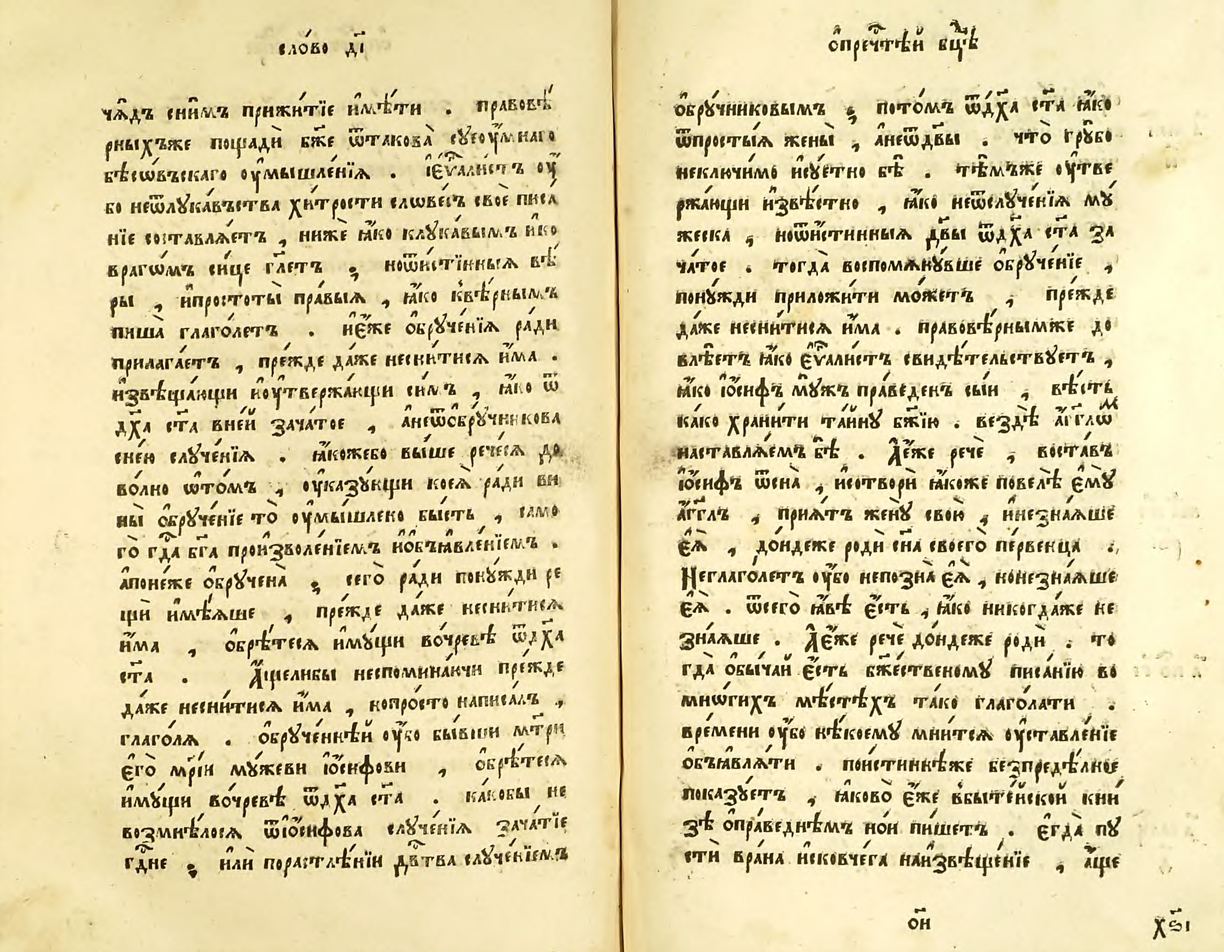 сло́во д҃і
ча̑дъ сни́мъ прижи́тїе и҆мѣ́ти . правовѣ́
рныхъже пощадѝ бж҃е ѿтакова̀ сꙋеоу́мнаго
бѣсо́въскаго оу҆мышле́нїѧ . і҆еѵⷢ҇али́стъ оу҆
бо неѿлꙋка́въства хи́трости слове́съ своѐ писа́
нїе составлѧ́етъ , нижѐ ꙗ҆́ко клꙋка́вымъ и҆ко
врагѡ́мъ си́це гл҃етъ , ноѿи́стїнныѧ вѣ́
ры , и҆простоты̀ пра́выѧ , ꙗ҆́ко квѣ́рнымъ
пиша̀ глаго́летъ . и҆є҆́же ѻ҆брꙋче́нїѧ ра́ди
прилага́етъ , пре́жде да́же несни́тисѧ и҆́ма .
и҆звѣща́ющи и҆оу҆твержа́ющи си́мъ , ꙗ҆́ко ѿ
дх҃а ст҃а вне́й зача́тое , а҆неѿѻбрꙋ́чникова
сне́ю слꙋче́нїѧ . ꙗ҆́кожебо вы́ше рече́сѧ до
во́лно ѡто́мъ , оу҆казꙋ́ющи коеѧ̀ ра́ди ви
ны̀ ѻ҆брꙋче́нїе то̀ оу҆мы́шлено бы́сть , само
го̀ гд҇а бг҃а произволе́нїемъ и҆ѻбъꙗвле́нїемъ .
а҆поне́же ѻ҆брꙋчена̀ , сего̀ ра́ди понꙋ́жди ре
щѝ и҆мѣ́ѧше , пре́жде да́же несни́тисѧ
и҆́ма , ѻ҆брѣ́тесѧ и҆мꙋ́щи во́чревѣ ѿдх҃а
ст҃а . А҆́щелибы неспомина́ючи пре́жде
да́же несни́тисѧ и҆́ма , нопро́сто написа́лъ ,
глаго́лѧ . ѻ҆брꙋче́ннѣй оу҆́бо бы́вши мт҃ри
є҆го̀ мр҃і́и мꙋ́жеви і҆ѻ́сифови , ѻ҆брѣ́тесѧ
и҆мꙋ́щи во́чревѣ ѿдх҃а ст҃а . ка́кобы не
возмнѣ́лосѧ ѿі҆ѻ́сифова слꙋче́нїѧ зача́тїе
гд҇не , и҆лѝ порастлѣ́нїи дв҃тва слꙋче́нїемъ
ѻ҆пречⷭ҇тѣй бц҃ѣ
ѻ҆брꙋ́чниковымъ , пото́мъ ѿдх҃а ст҃а ꙗ҆́ко
ѿпросты́ѧ жены̀ , а҆неѿдв҃ы . что̀ грꙋ́бо
неключи́мо и҆сꙋ́етно бѣ̀ . тѣ́мъже оу҆тве
ржа́ющи и҆звѣ́стно , ꙗ҆́ко неѿслꙋче́нїѧ мꙋ́
жеска , ноѿи́стинныѧ дв҃ы ѿдх҃а ст҃а за
ча́тое . тогда̀ воспомѧнꙋ́вше ѻ҆брꙋче́нїе ,
понꙋ́жди приложи́ти мо́жетъ , пре́жде
да́же несни́тисѧ и҆́ма . правовѣ́рнымже до
влѣ́етъ ꙗ҆́ко є҆ѵⷢ҇али́стъ свидѣ́тельствꙋетъ ,
ꙗ҆́ко і҆ѻ́сифъ мꙋ́жъ пра́веденъ сы́и , вѣ́сть
ка́ко храни́ти та́йнꙋ бж҃їю . вездѣ̀ а҆́гг҃лѡм
наставлѧ́емъ бѣ̀ . А҆є҆́же речѐ , воста́въ
і҆ѻ́сифъ ѿсна̀ , и҆сотворѝ ꙗ҆́коже повелѣ̀ є҆мꙋ̀
а҆́гг҃лъ , прїѧ́тъ женꙋ̀ свою̀ , и҆незна́ѧше
є҆ѧ̀ , до́ндеже родѝ сн҃а своего̀ пе́рвенца .,
Неглаго́летъ оу҆́бо непозна̀ є҆ѧ̀ , нонезна́ѧше
є҆ѧ̀ . ѿсего̀ ꙗ҆́вѣ є҆́сть , ꙗ҆́ко никогда́же не
зна́ѧше . А҆є҆́же речѐ до́ндеже родѝ . то
гда̀ ѻ҆бы́чай є҆́сть бж҃е́ственомꙋ писа́нїю во
мно́гихъ мѣ́стѣхъ та́ко глаго́лати .
вре́мени оу҆́бо нѣ́коемꙋ мни́тсѧ оу҆ставле́нїе
ѻ҆бъꙗвлѧ́ти . пои́стиннѣже безпредѣ́лное
показꙋ́етъ , ꙗ҆ково̀ є҆́же вбыте́йской кни́
зѣ ѻ҆пра́веднѣмъ но́и пи́шетъ . є҆гда̀ пꙋ
стѝ вра́на и҆сковче́га наи҆звѣще́нїе , а҆́ще
ѻ҆́н